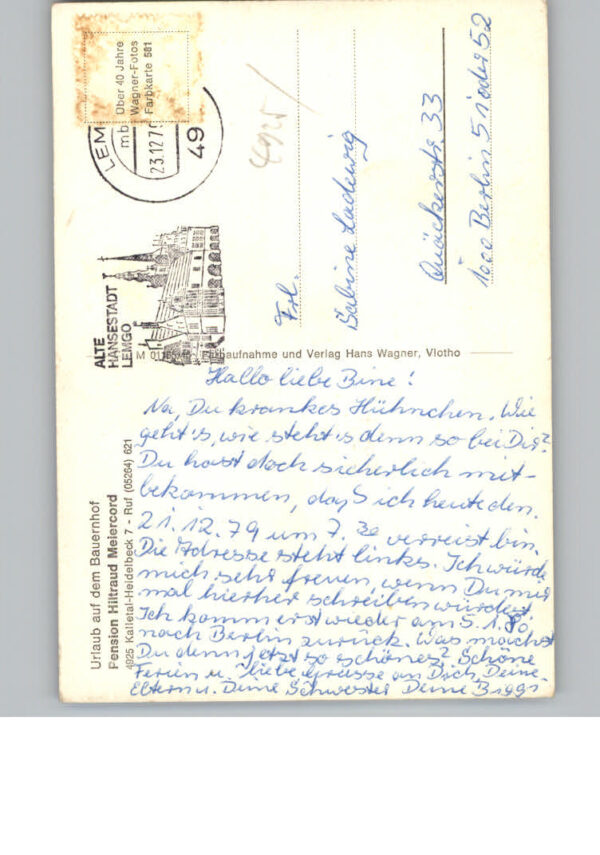 Über 40 Jahre
Wagner-Fotos
Farbkarte 581
LEM
mb
23.12.7
49
4925
ALTE
HANSESTADT
LEMGO
Frl.
Sabine Ladewig
Quäckerstr. 33
1000 Berlin 51 oder 52
Farbaufnahme und Verlag Hans Wagner, Vlotho
Urlaub auf dem Bauernhof
Pension Hiltraud Meiercord
4925 Kalletal-Heidelbeck 7 - Ruf (05264) 621
Hallo liebe Bine!
Na, Du krankes Hühnchen. Wie
geht's, wie steht's denn so bei Dir?
Du hast doch sicherlich mit-
bekommen, daß ich heute den.
21.12.79 um 7.30 verreist bin.
Die Adresse steht links. Ich würde
mich sehr freuen, wenn Du mir
mal hierher schreiben würdest.
Ich komm erst wieder am 5.1.80
nach Berlin zurück. Was machst
Du denn jetzt so schönes? Schöne
Ferien u. liebe Grüsse an Dich, Deine
Eltern u. Deine Schwester Deine Biggi